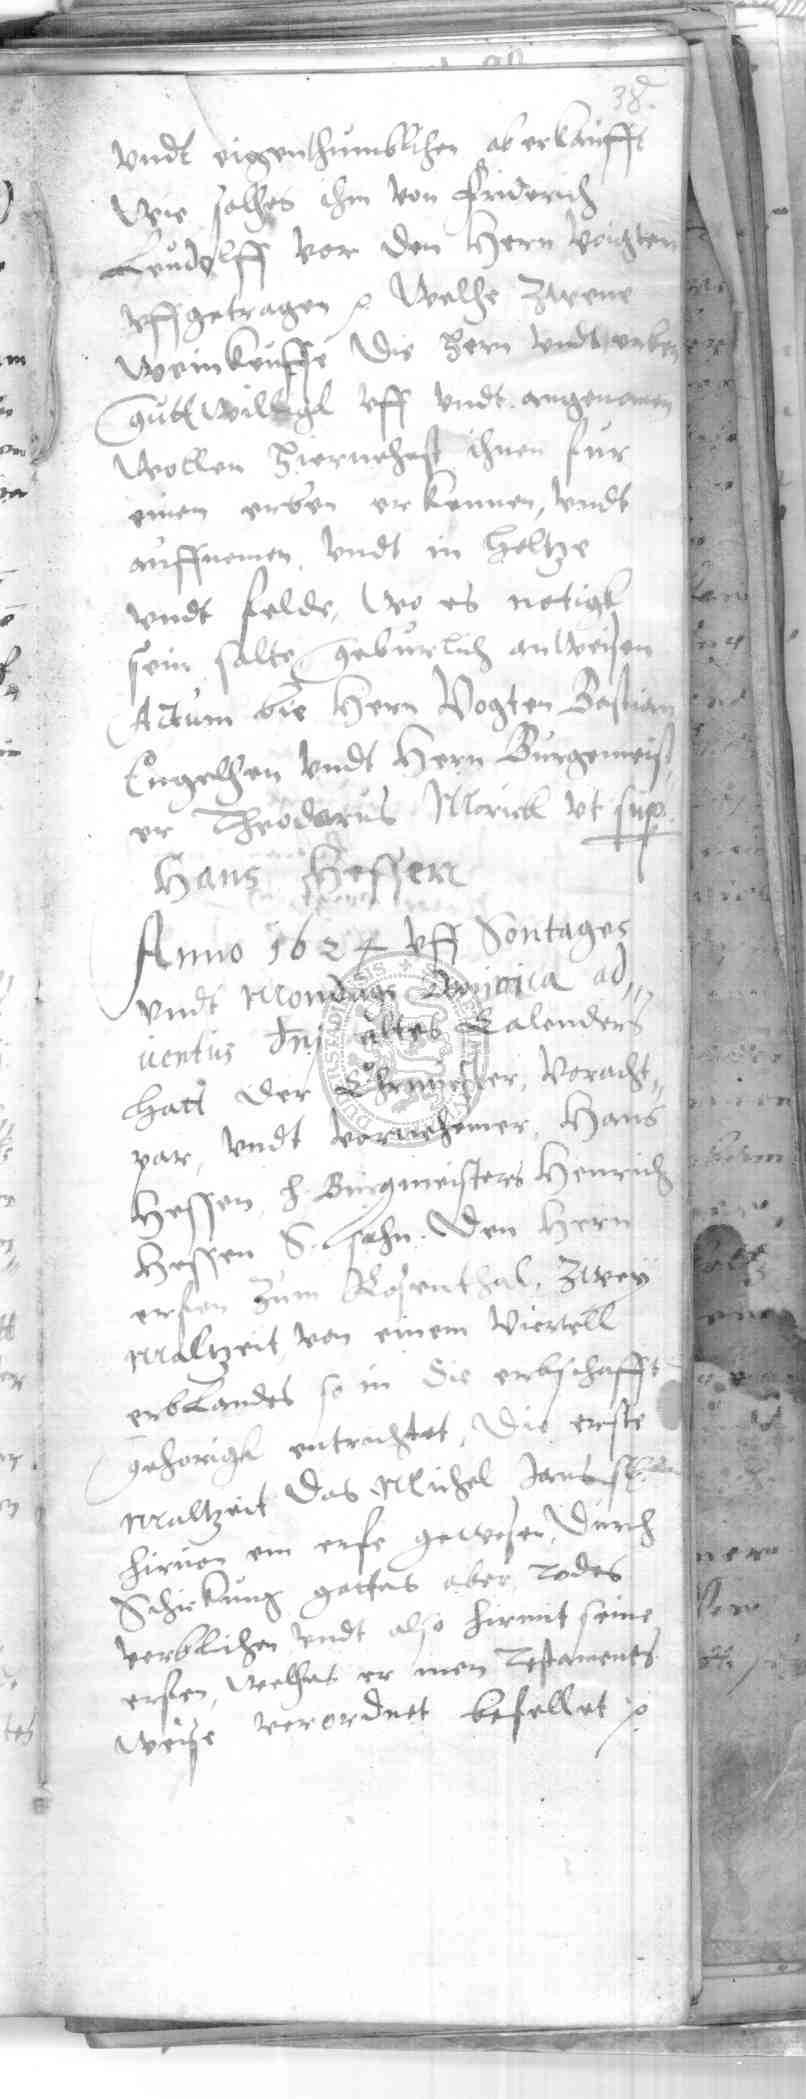 38.
vndt eigenthumblichen ab erkaufft
Wie solches ihm von Friderich
Leudolff vor den Hern Voigten
vffgetragen Welche Zweene
Weinkeuffe die Hern vndt erben
gutt Willigk vff vndt angenomen
Wollen Hiernehest ihnen fur
einen erben erkennen, vndt
auffnemen, vndt in holtze
vndt felde, Wo es notigk
sein solte geburlich anWeisen
Actum bie Hern Vogten Bastian
Engelhen vndt Hern Burgemeist
er Theodorus Morick vt sup.
Hans Hessen
Anno 1624 vff Sontages
vndt Mondags ad„
uentus dni altes Calenders
hatt der Ehrnvester, Voracht„
par, vndt vornehmer, Hans
Hessen, h. Burgmeisters Henrich
Hessen S. sohn. Den Hern
erben zum Rosenthal, Zwey
Maltzeit, von einem Viertell
erbLandes so in die erbschafft
gehorigk entrichtet, Die erste
Maltzeit das Michel Jans
hirvon ein erbe gewesen, Durch
Schickung gottes aber todes
verblichen vndt also hirmit seine
erben, Welche er inen Testaments
Weise verordnet befellet